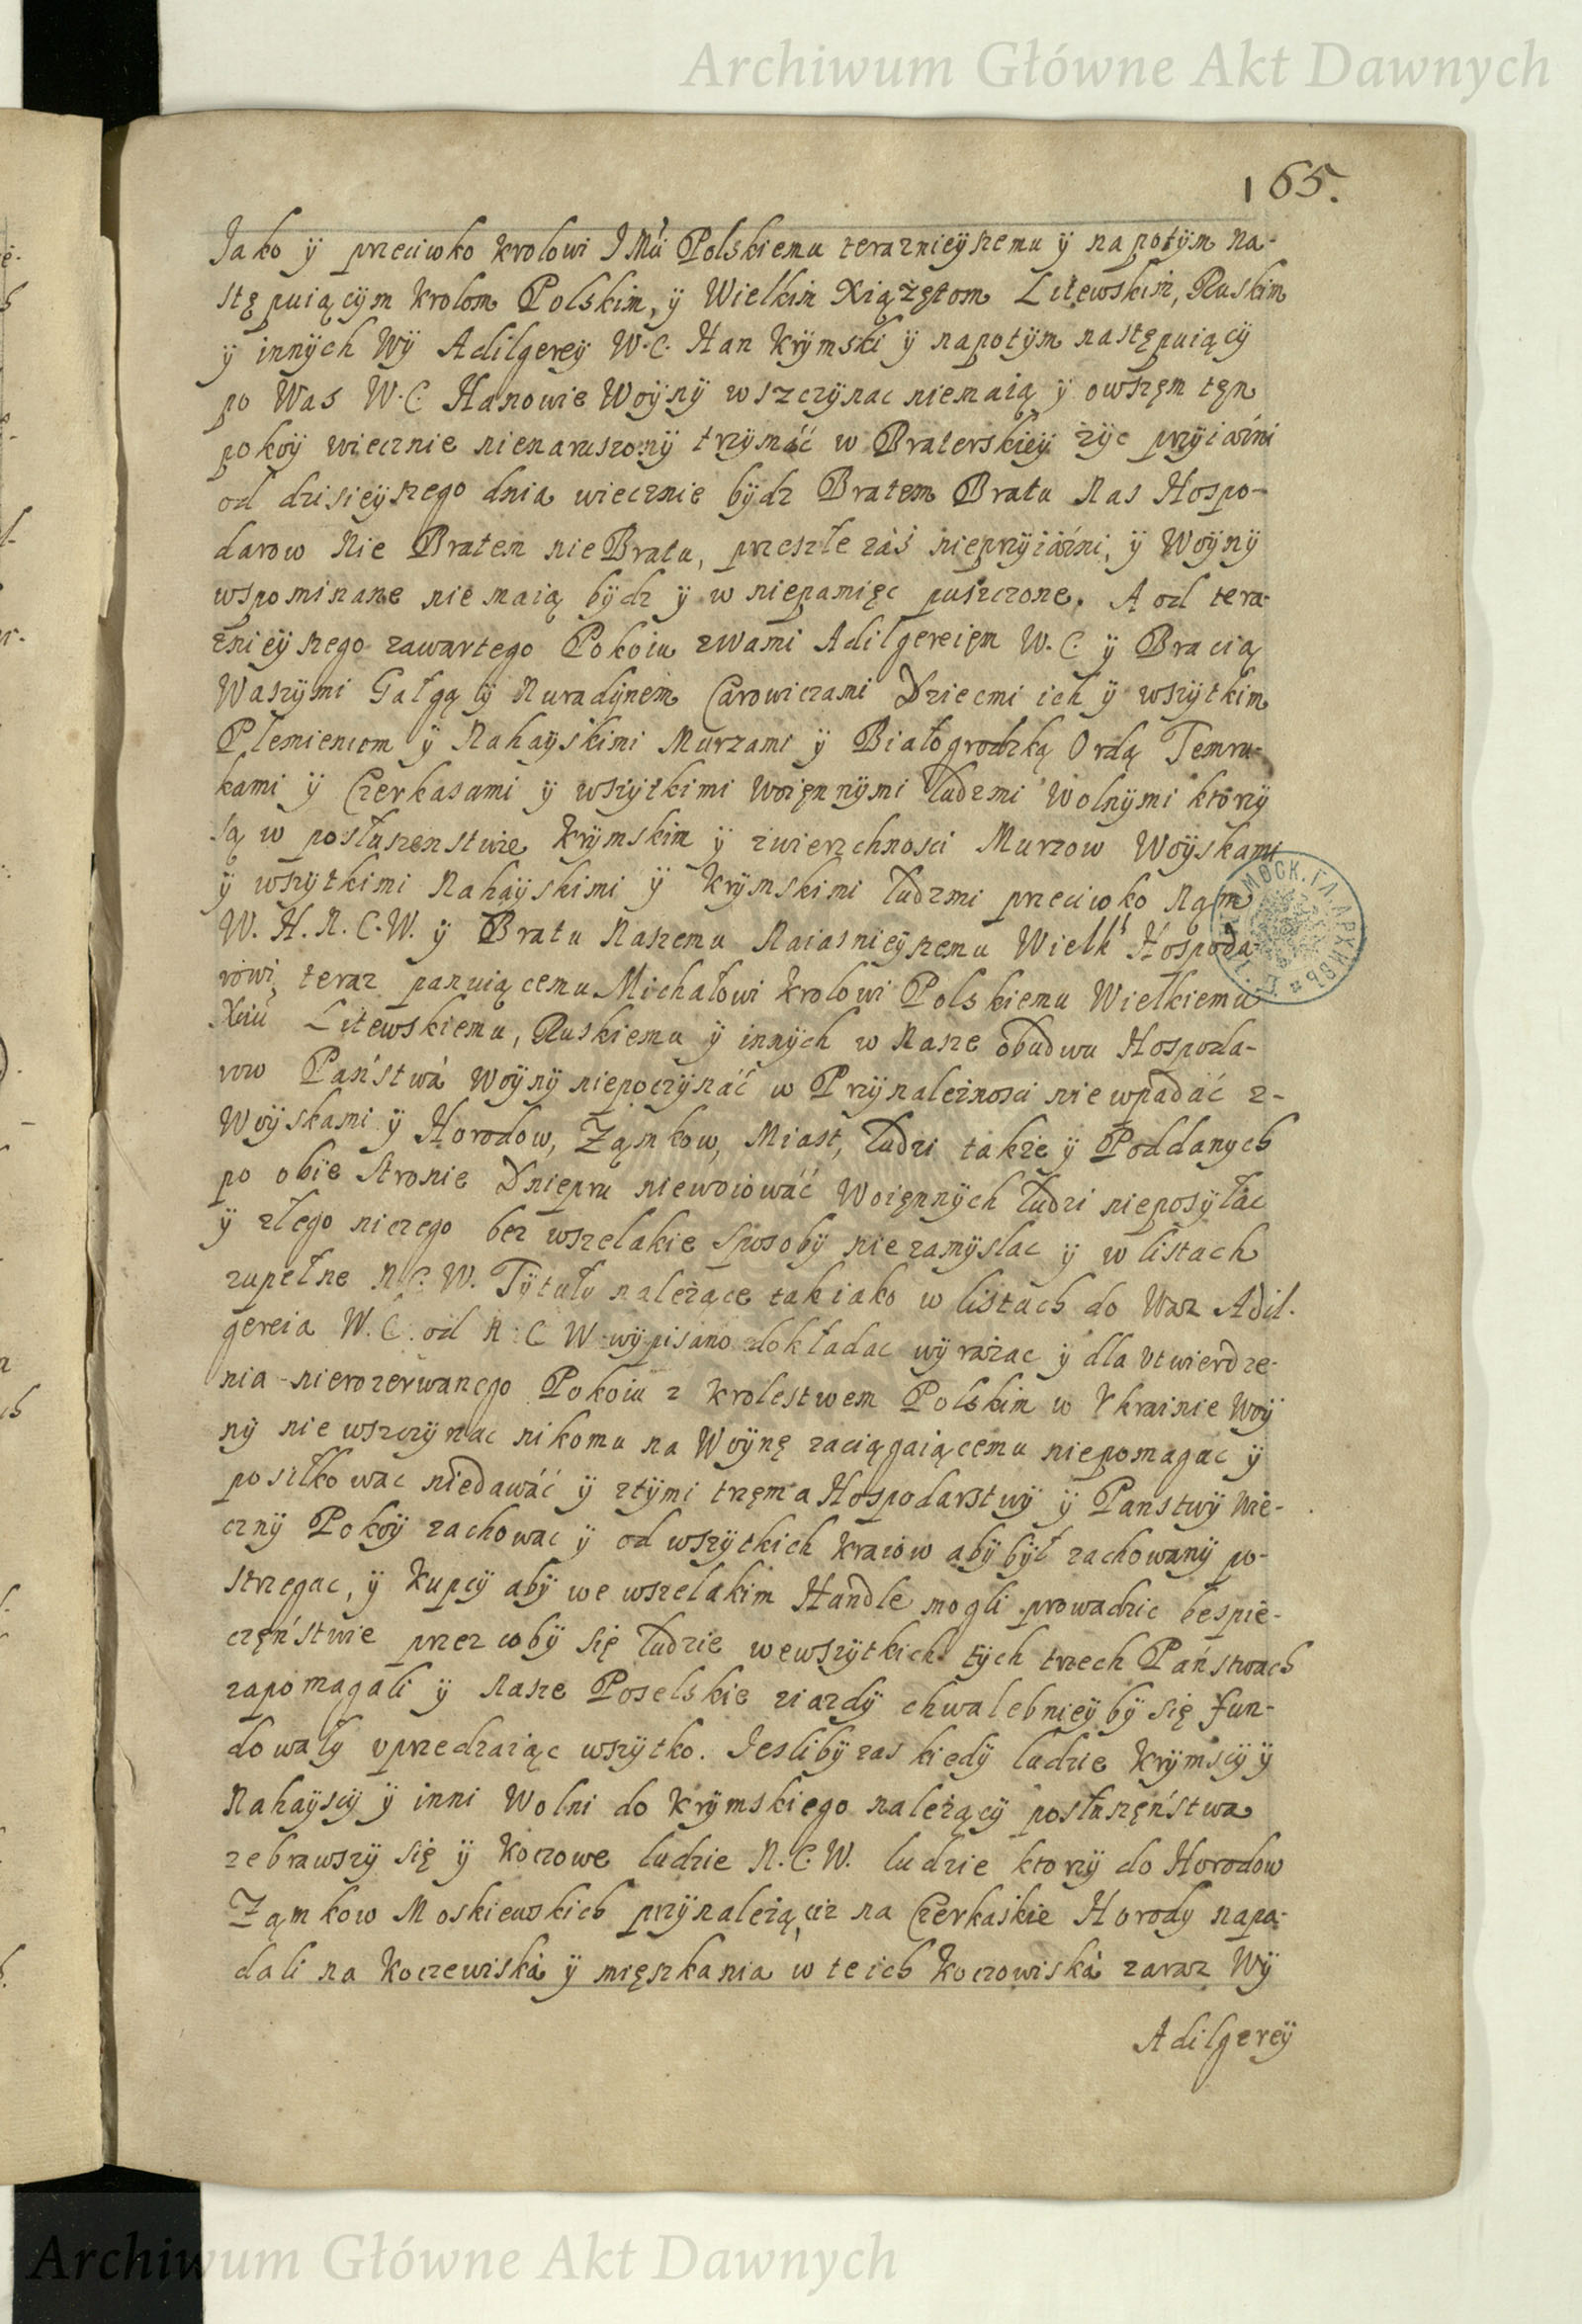 Archiwum Główne Akt Dawnych
165.
Jako ÿ przeciwko Krolowi JMu Polskiemu teraznieÿszemu ÿ napotÿm na-
stępuiącÿm Krolom Polskim, ÿ Wielkim Xiążętom Litewskim, Ruskim
ÿ innÿch WŸ Adilgereÿ W.C. Han Krÿmski ÿ napotÿm następuiącÿ
po Was W.C. Hanowie Woÿnÿ wszczÿnac niemaią ÿ owszęm tęn
pokoÿ wiecznie nienaruszonÿ trzÿmać w Braterskieÿ żÿc przÿiaźni
od dzisieÿszego dnia wiecznie bÿdz Bratem Bratu Nas Hospo-
darow Nie Bratem nie Bratu, przeszłe záś nieprzÿiáźni, ÿ Woÿnÿ
wspominane nie maią bÿdz ÿ w niepamięc puszczone. A od tera-
znieÿszego zawartego Pokoiu zwami Adilgereięm W.C. ÿ Bracią
Waszÿmi Gałgą ÿ Nuradÿnem Carowiczami Dziecmi ich ÿ wszÿtkim
Plemieniom ÿ Nahaÿskimi Murzami ÿ Białogrodzką Ordą Temru-
kami ÿ Czerkasami ÿ wszÿtkimi woięnnÿmi Ludzmi Wolnÿmi ktorzÿ
są w posłuszenstwie Krÿmskim ÿ zwierzchnosci Murzow Woÿskami
ÿ wszÿtkimi Nahaÿskimi ÿ Krÿmskimi Ludzmi przeciwko Nam
W. H. N. C. W. ÿ Bratu Naszemu Naiasnieÿszemu Wielk Hospoda-
rowi teraz panuiącemu Michałowi Krolowi Polskiemu Wielkiemu
Xciu Litewskiemu, Ruskiemu ÿ innÿch w Nasze obudwu Hospoda-
row Państwá Woÿnÿ niepoczÿnáć w Przÿnależnosci nie wpadáć z-
Woÿskami ÿ Horodow, Ząmkow, Miast, Ludzi także ÿ Poddanych
po obie Stronie Dniepru niewoiowáć Woięnnÿch Ludzi nieposÿłac
ÿ złego niczego bez wszelakie sposobÿ niezamÿslac ÿ w listach
zupełne N.C.W. Tÿtułÿ należące tak iako w listach do Waz Adil-
gereia W.C. od N.C.W wÿpisano dokładac wÿrażac ÿ dla vtwierdze-
nia nierozerwanego Pokoiu z Krolestwem Polskim w Vkrainie Woÿ
nÿ nie wszczÿnac nikomu na Woÿnę zaciągaiącemu niepomagac ÿ
posiłkowac niedawáć ÿ ztÿmi trzęma Hospodarstwÿ ÿ Panstwÿ wie-
cznÿ Pokoÿ zachowac ÿ od wszÿtkich Kraiow abÿ bÿł zachowanÿ po-
strzegac, ÿ Kupcÿ abÿ we wszelakim Handle mogli prowadzic bespie-
częństwie przez cobÿ się Ludzie wewszÿtkich tÿch trzech Państwach
zapomagali ÿ Nasze Poselskie ziazdÿ chwalebnieÿ bÿ się fun-
dowałÿ vprzedzaiąc wszÿtko. Jeslibÿ zas kiedÿ ludzie Krÿmscÿ ÿ
Nahaÿscÿ ÿ inni Wolni do Krÿmskiego należącÿ posłuszęństwa
zebrawszÿ się ÿ koczowe ludzie N.C.W. ludzie ktorzÿ do Horodow
Ząmkow Moskiewskich przÿnależą, ciz na Czerkaskie Horodÿ napa-
dali na Koczewiská ÿ mięszkania w te ich Koczowiská zaraz WŸ
Adilgereÿ
МОСК. ГЛ. АРХИВЪ
Archiwum Główne Akt Dawnych